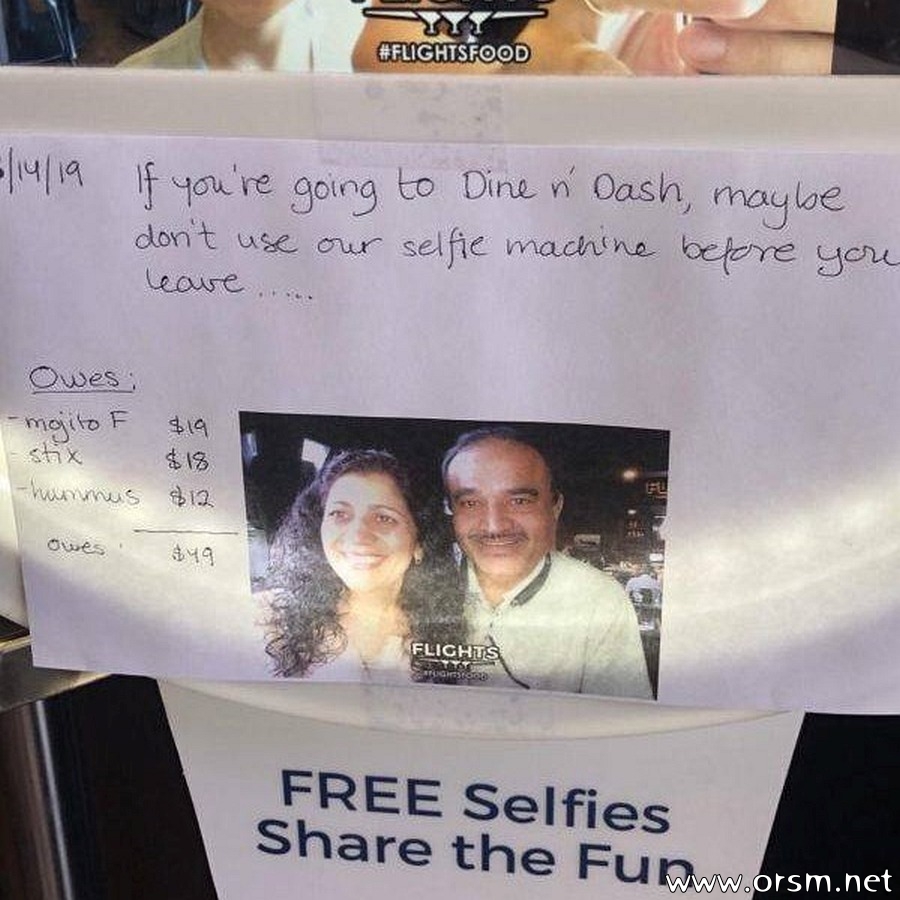 #FLIGHTSFOOD
/14/19
If you're going to Dine n' Dash, maybe
don't use our selfie machine before you
leave.....
Owes:
- mojito F $19
- stix $18
- hummus $12
owes: $49
FLIGHTS
#FLIGHTSFOOD
FREE Selfies
Share the Fun
www.orsm.net